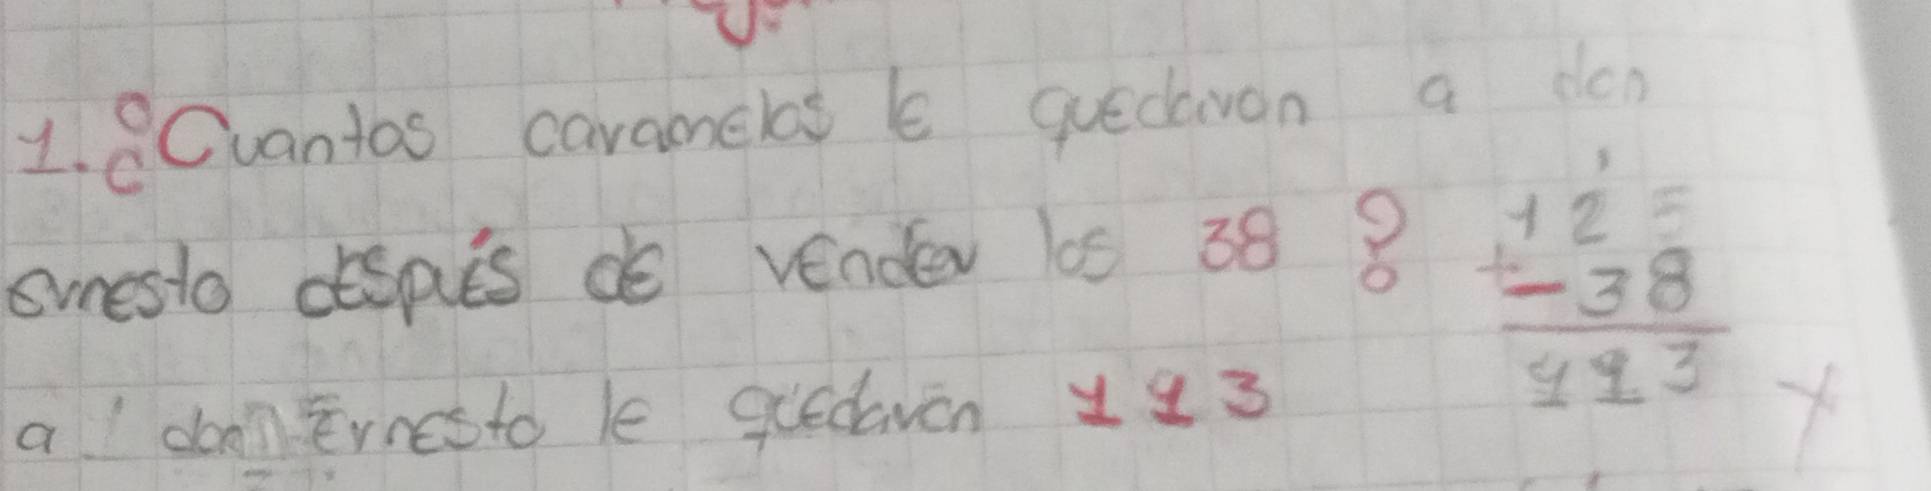 1. ¿Cuantos caramelos le quedavan a don
ernesto después de vender los 38 ?
125
+ - 38
113
a don Ernesto le quedaven 113